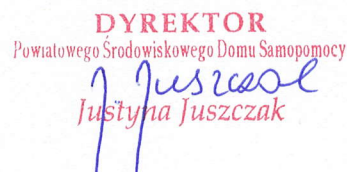 DYREKTOR
Powiatowego Środowiskowego Domu Samopomocy
J. Juszczak
Justyna Juszczak